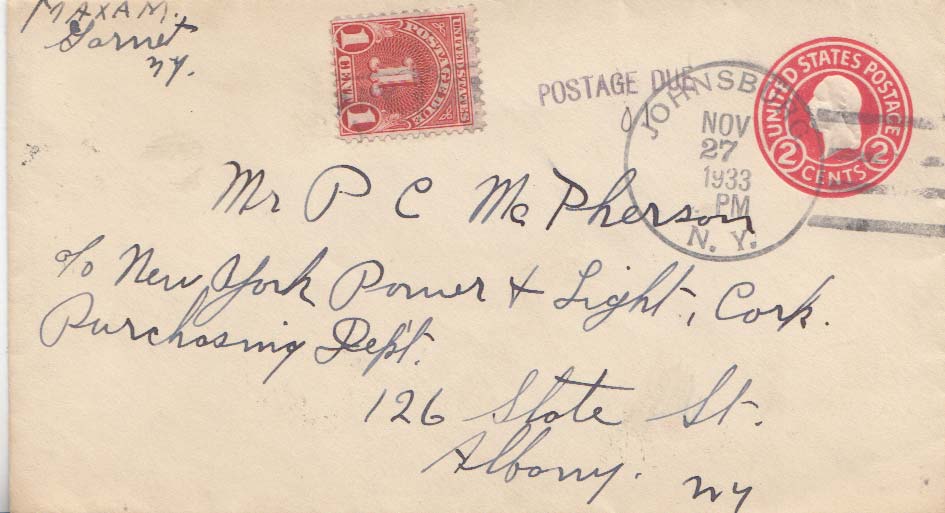 MAXAM.
Garnet
NY.
UNITED STATES
POSTAGE DUE
1 1 1
CENT
POSTAGE DUE
JOHNSBURG
NOV
27
1933
PM
N. Y.
UNITED STATES POSTAGE
2 CENTS 2
Mr P C McPherson
c/o New York Power & Light, Corp.
Purchasing Dep't.
126 State St.
Albany. NY